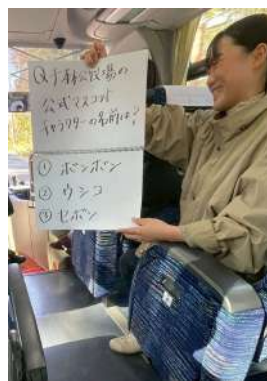 Q.千本松牧場の
公式マスコット
キャラクターの名前は?
① ボンボン
② ウシコ
③ セボン